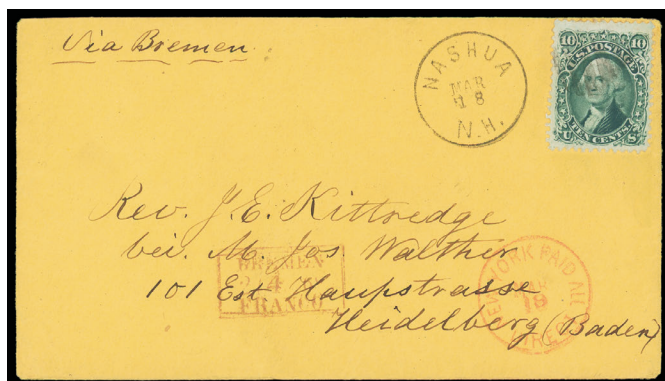 Via Bremen
NASHUA
MAR
18
N.H.
10 10
U.S. POSTAGE
TEN CENTS
U S
Rev. J. E. Kittredge
bei. M. Jos Walther
101 Est Haupstrasse
Heidelberg (Baden)
BREMEN
4
FRANCO
NEW YORK PAID ALL
19
DIRECT